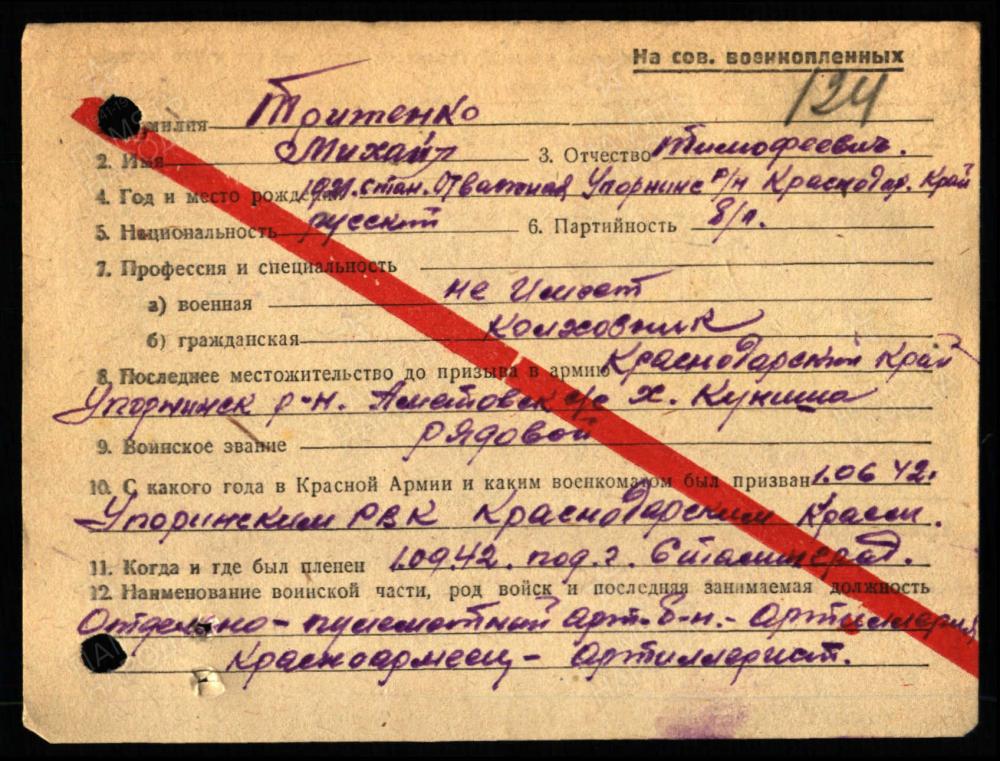 На сов. военнопленных
124
Фамилия Тритенко
2. Имя Михаил 3. Отчество Тимофеевич.
4. Год и место рождения 1921. стан. Отважная Упорнинс р/н Краснодар. Край
5. Национальность русский 6. Партийность б/п.
7. Профессия и специальность
а) военная не имеет
б) гражданская колховник
8. Последнее местожительство до призыва в армию Краснодарский Край
Упорнинск р-н. с/с х. Куниша
9. Воинское звание рядовой
10. С какого года в Красной Армии и каким военкоматом был призван 1.06 42.
Упоринским РВК Краснодарским Краем.
11. Когда и где был пленен 1.09.42. под. г. Сталинград.
12. Наименование воинской части, род войск и последняя занимаемая должность
Отдельно-пулеметный арт. б-н. - Артиллерия
Красноармеец - артиллерист.